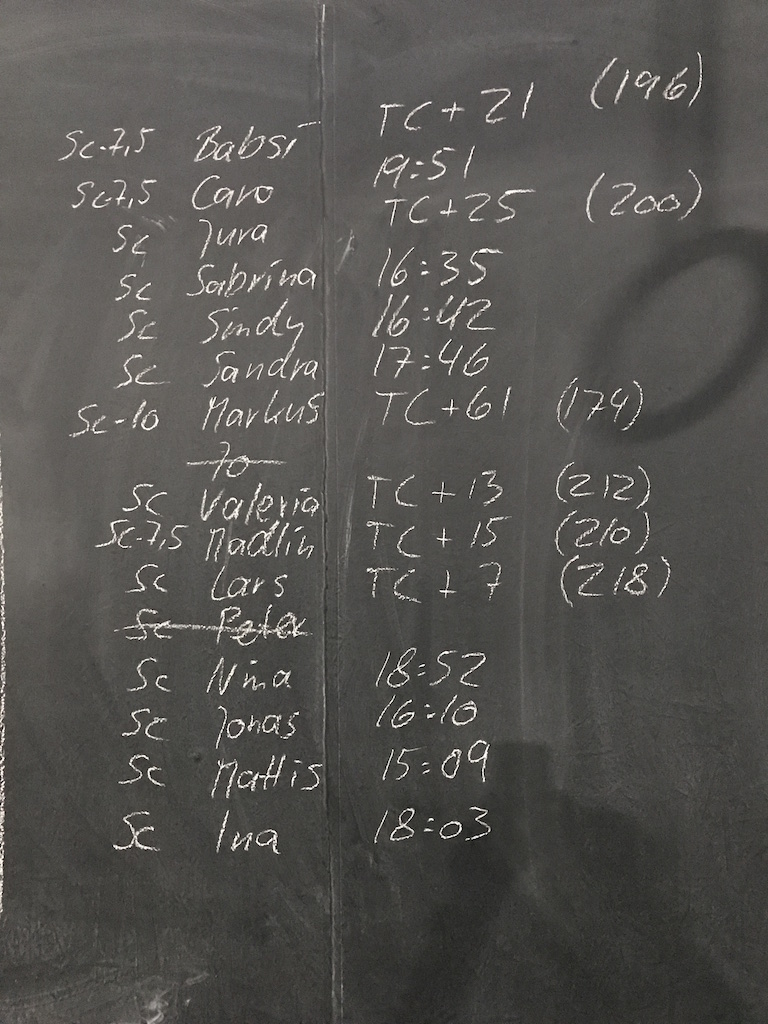 Sc-7,5 Babsi TC + 21 (196)
Sc-7,5 Caro 19:51
Sc Jura TC+25 (200)
Sc Sabrina 16:35
Sc Sindy 16:42
Sc Sandra 17:46
Sc-10 Markus TC+61 (174)
Jo
Sc Valeria TC + 13 (212)
Sc-7,5 Madlin TC + 15 (210)
Sc Lars TC + 7 (218)
Sc Peter
Sc Nina 18:52
Sc Jonas 16:10
Sc Mattis 15:09
Sc Ina 18:03